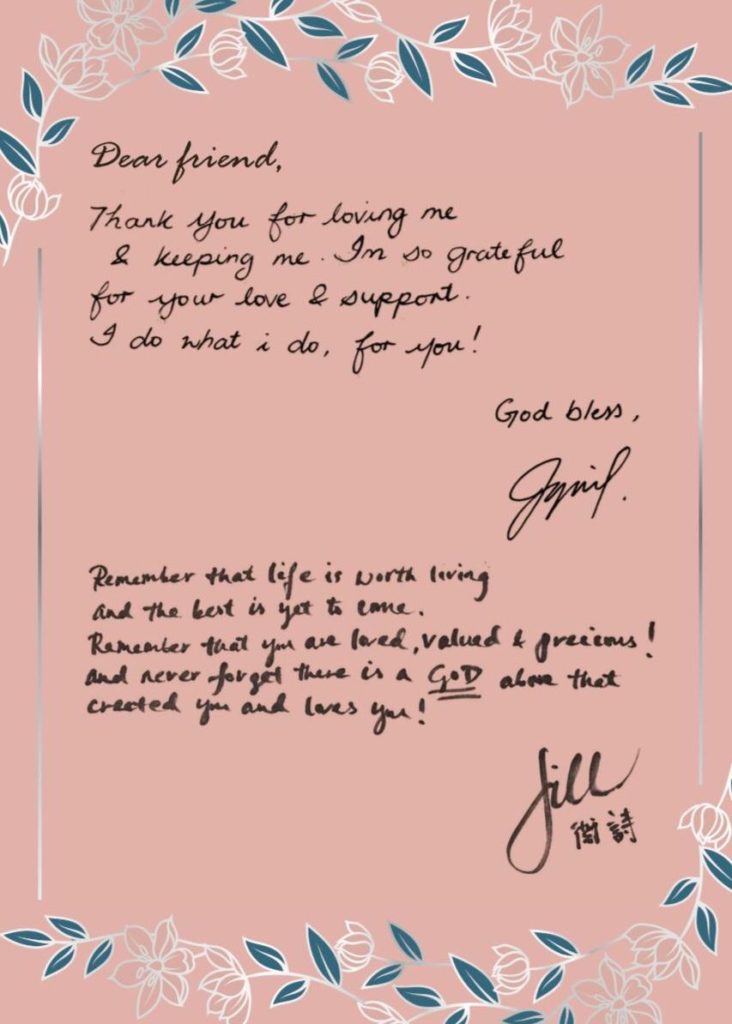 Dear friend,
Thank you for loving me
& keeping me. I'm so grateful
for your love & support.
I do what i do, for you!
God bless,
Remember that life is worth living
and the best is yet to come.
Remember that you are loved, valued & precious!
and never forget there is a GOD above that
created you and loves you!
Jill
衡詩